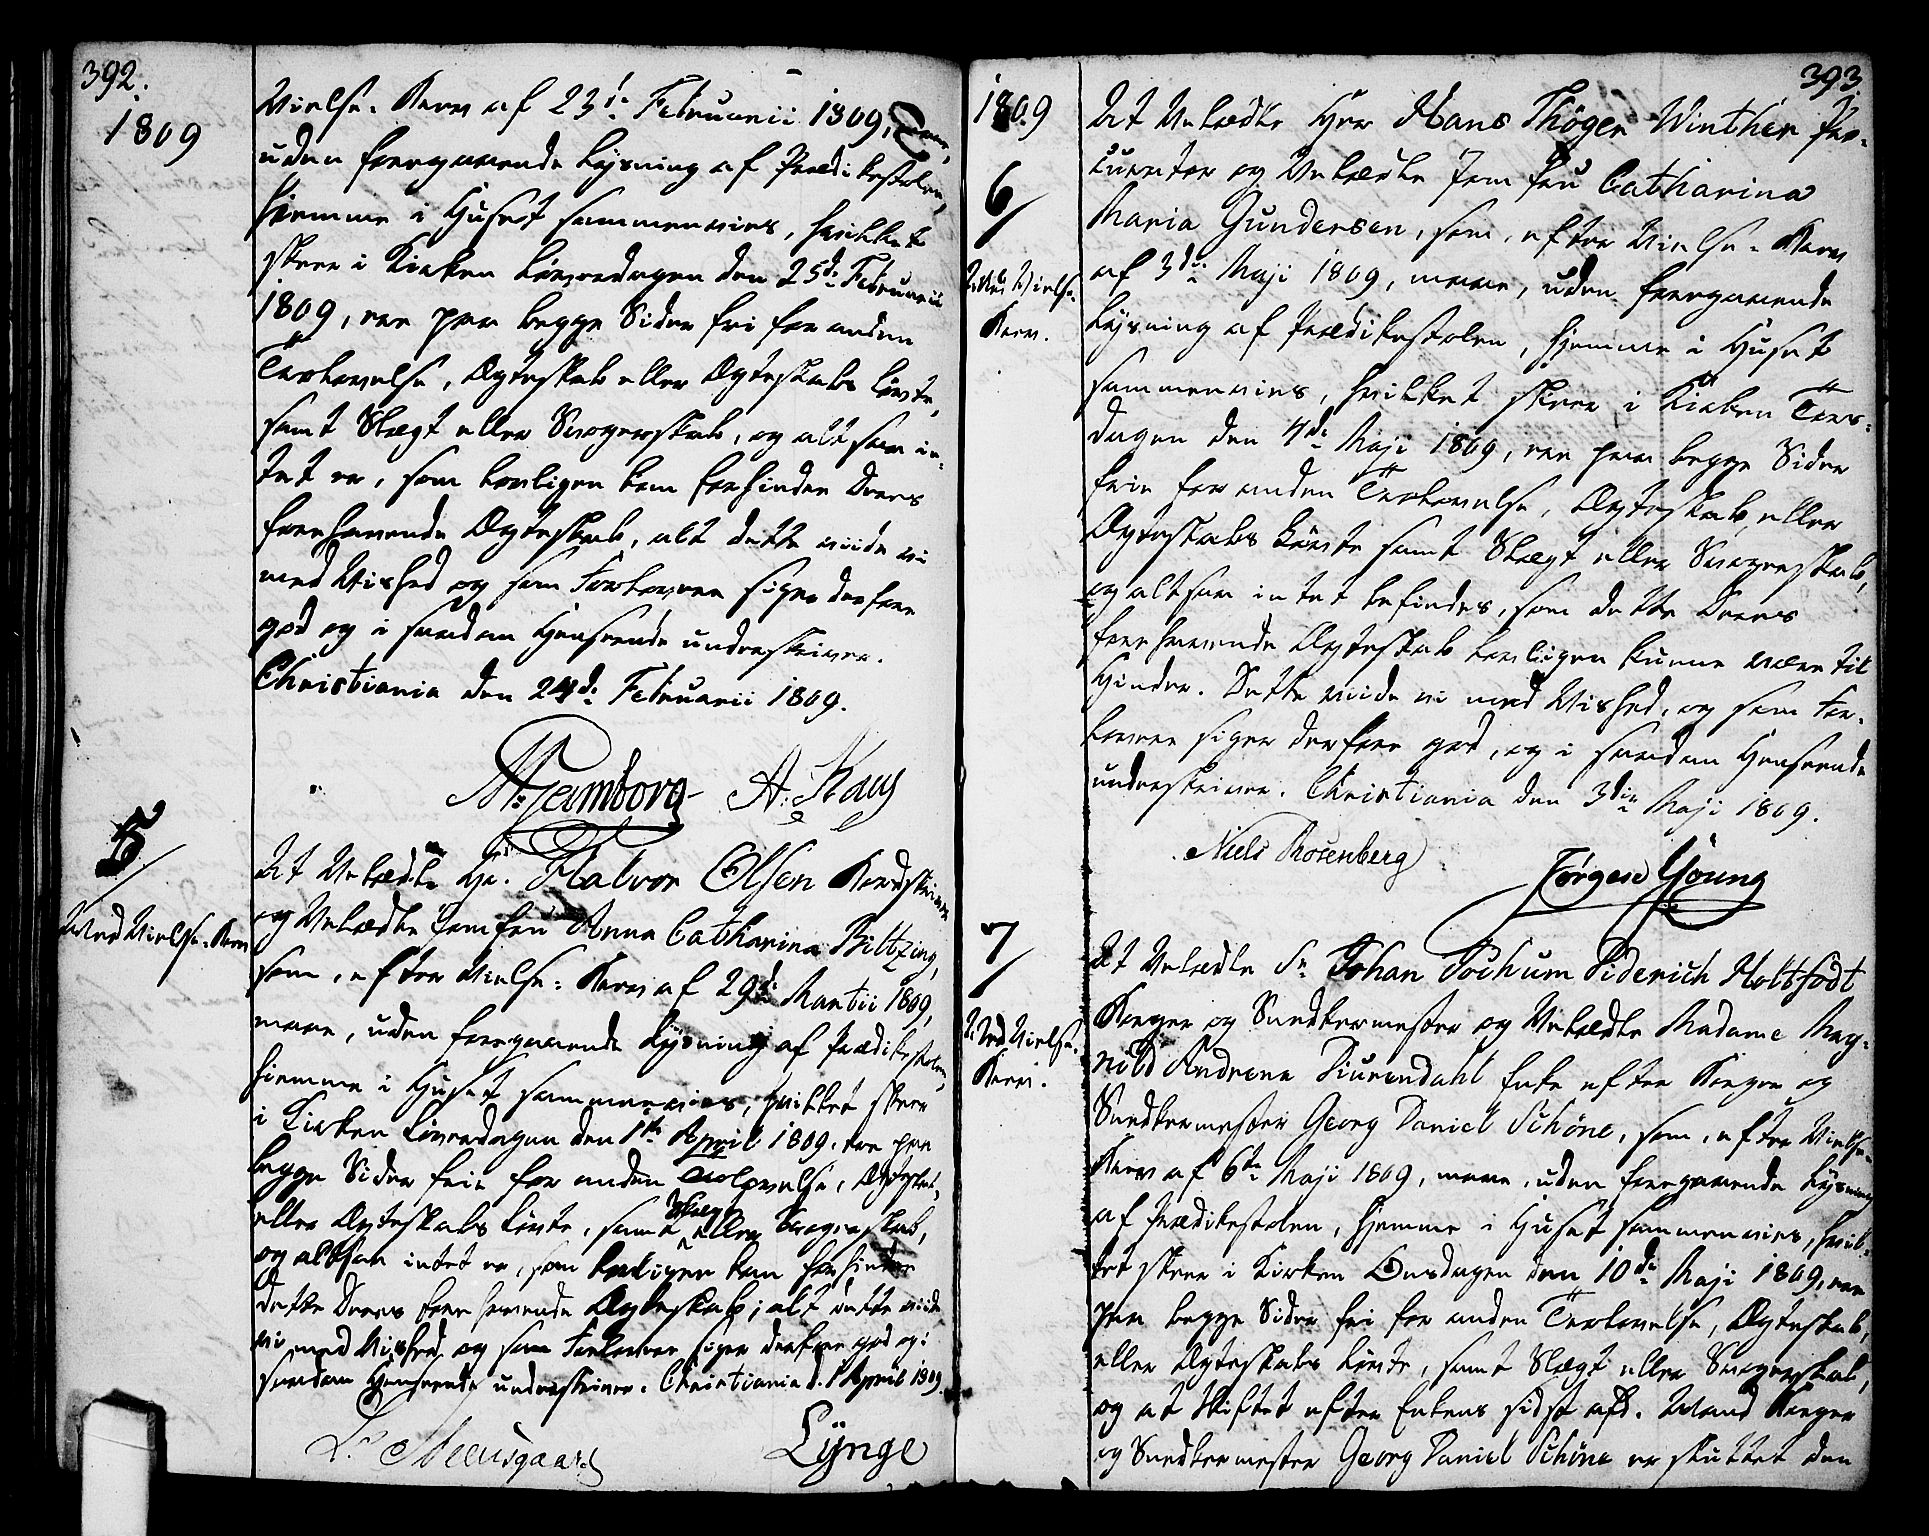 392.
1809
Vielse-Brev af 23de Februarii 1809,
uden foregaaende Lysning af Prædikestolen,
hiemme i Huset sammenvies, hvilket
skeer i Kirken Løverdagen den 25de Februarii
1809, ere paa begge Sider fri for anden
Trolovelse, Ægteskab eller Ægteskabs Løvte,
samt Slægt eller Svogerskab, og altsaa in-
tet er, som lovligen kan forhindre Deres
forehavende Ægteskab, alt dette vide vi
med Vished og som Forlovere sige derfore
god og i saadan Henseende underskriver.
Christiania den 24de Februarii 1809.
M: Jamborg A: Kaus
5/
Med Vielse-Brev
At Velædle Hr. Halvor Olsen
og Velædle Jomfru Anna Catharina Biltzing,
som, efter Vielse-Brev af 29de Martii 1809,
maae, uden foregaaende Lysning af Prædikestolen,
hiemme i Huset sammenvies, hvilket skeer
i Kirken Løverdagen den 1ste April 1809. ere paa
begge Sider frie for anden Trolovelse, Ægteskab,
eller Ægteskabs Løvte, samt Slægt eller Svogerskab,
og altsaa intet er, som lovligen kan forhindre
dette Deres forehavende Ægteskab; alt dette vide
vi med Vished og som Forlovere siger derfore god og i
saadan Henseende underskriver. Christiania d. 1 April 1809.
Lynge
393.
1809
6/
Med Vielse-
Brev.
At Velædle Herr Hans Thøger Winther Pro-
curator og Velædle Jomfru Catharina
Maria Gundersen, som, efter Vielse-Brev
af 3die Maji 1809, maae, uden foregaaende
Lysning af Prædikestolen, hjemme i Huset
sammenvies, hvilket skeer i Kirken Tors-
dagen den 4de Maji 1809, ere paa begge Sider
frie for anden Trolovelse, Ægteskab, eller
Ægteskabs Løvte samt Slægt eller Svogerskab,
og altsaa intet befindes, som dette Deres
forehavende Ægteskab lovligen kunne være til
Hinder. Dette vide vi med Vished, og som For-
lovere siger derfore god, og i saadan Henseende
underskriver. Christiania den 3die Maji 1809.
Niels Rosenberg
Jørgen Young
7/
Med Vielse-
Brev.
At Velædle Sr. Johan Jochum Diderich Holtfodt
Kræger og Snedkermester og Velædle Madame Mag-
nild Andrena Diurendahl Enke efter Kræger og
Snedkermester Georg Daniel Schöne, som, efter Vielse-
Brev af 6te Maji 1809, maae, uden foregaaende Lysning
af Prædikestolen, hjemme i Huset sammenvies, hvil-
ket skeer i Kirken Onsdagen den 10de Maji 1809, ere
paa begge Sider fri for anden Trolovelse, Ægteskab,
eller Ægteskabs Løvte, samt Slægt eller Svogerskab,
og at Skiftet efter Enkens sidst afd. Mand Kræger
og Snedkermester Georg Daniel Schöne er sluttet den